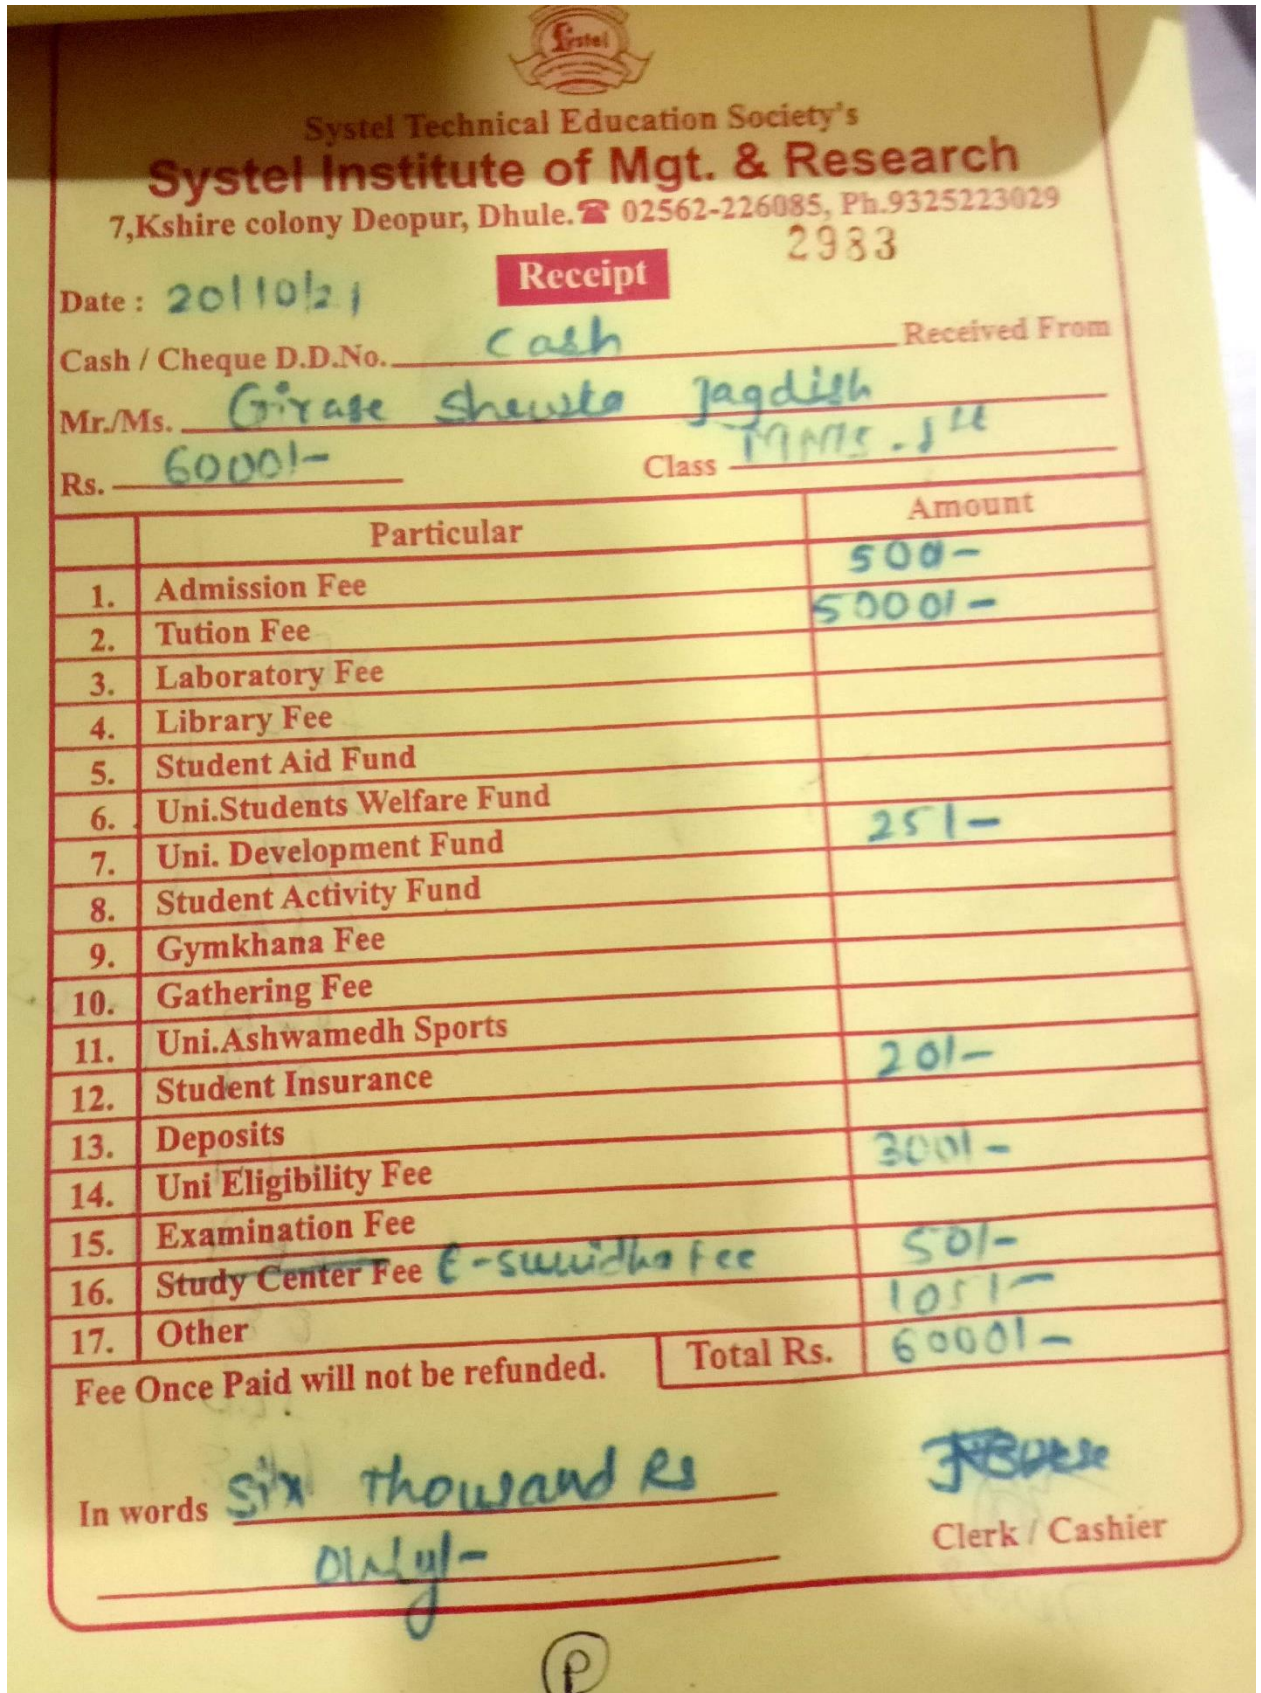 Systel
Systel Technical Education Society's
Systel Institute of Mgt. & Research
7,Kshire colony Deopur, Dhule.☎ 02562-226085, Ph.9325223029
2983
Receipt
Date : 20/10/21
Cash / Cheque D.D.No. Cash Received From
Mr./Ms. Girase Shewta Jagdish
Rs. 6000/- Class MMS. Ist
Particular Amount
1. Admission Fee 500-
2. Tution Fee 5000/-
3. Laboratory Fee
4. Library Fee
5. Student Aid Fund
6. Uni.Students Welfare Fund
7. Uni. Development Fund 25/-
8. Student Activity Fund
9. Gymkhana Fee
10. Gathering Fee
11. Uni.Ashwamedh Sports
12. Student Insurance 20/-
13. Deposits
14. Uni Eligibility Fee 300/-
15. Examination Fee
16. Study Center Fee E-suwidha Fee 50/-
17. Other 105/-
Fee Once Paid will not be refunded. Total Rs. 6000/-
In words Six Thousand Rs
Only/-
Clerk / Cashier
P